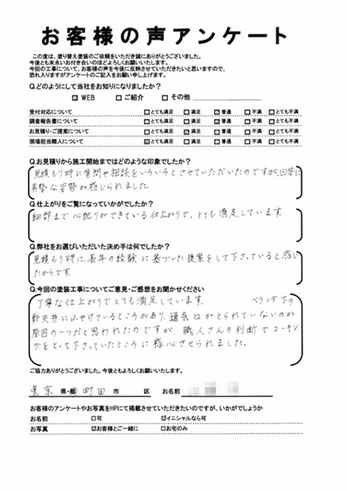 お客様の声アンケート
この度は、塗り替え塗装のご依頼をいただき誠にありがとうございました。
今後とも末永いお付き合いのほどよろしくお願いいたします。
今回の工事について、お客様の声を今後に反映させていただきたいと思いますので、
恐れ入りますがアンケートのご記入をお願い申し上げます。
Q.どのようにして当社をお知りになりましたか?
☑ WEB □ ご紹介 □ その他
受付対応について □とても満足 □満足 ☑普通 □不満 □とても不満
調査報告書について □とても満足 □満足 ☑普通 □不満 □とても不満
お見積り・ご提案について □とても満足 ☑満足 □普通 □不満 □とても不満
現場担当職人について ☑とても満足 □満足 □普通 □不満 □とても不満
Q.お見積りから施工開始まではどのような印象でしたか?
見積もり時に質問や相談をいろいろとさせていただいたのですが、回答に
真摯な姿勢が感じられました。
Q.仕上がりをご覧になっていかがでしたか?
細部まで心配りができている仕上がりで、とても満足しています
Q.弊社をお選びいただいた決め手は何でしたか?
見積もり時に、長年の経験に基づいた提案をして下さっていると感じ
たからです
Q.今回の塗装工事についてご意見・ご感想をお聞かせください
丁寧な仕上がりでとても満足しています ベランダ下の
軒天井にふやけているところがあり、通気口がとられていないのが
原因の一つだと思われたのですが、職人さんの判断でコーキン
グをとって下さっていたところに感心させられました。
ご協力ありがとうございました。今後ともよろしくお願いいたします。
東京 県・都 町田 市 区 お名前
お客様のアンケートやお写真をHPにて掲載させていただきたいのですが、いかがでしょうか
お名前 □可 ☑イニシャルなら可
お写真 ☑お客様とご一緒に □お宅のみ